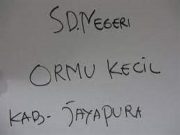 SD.NEGERI
ORMU KECIL
KAB- JAYAPURA